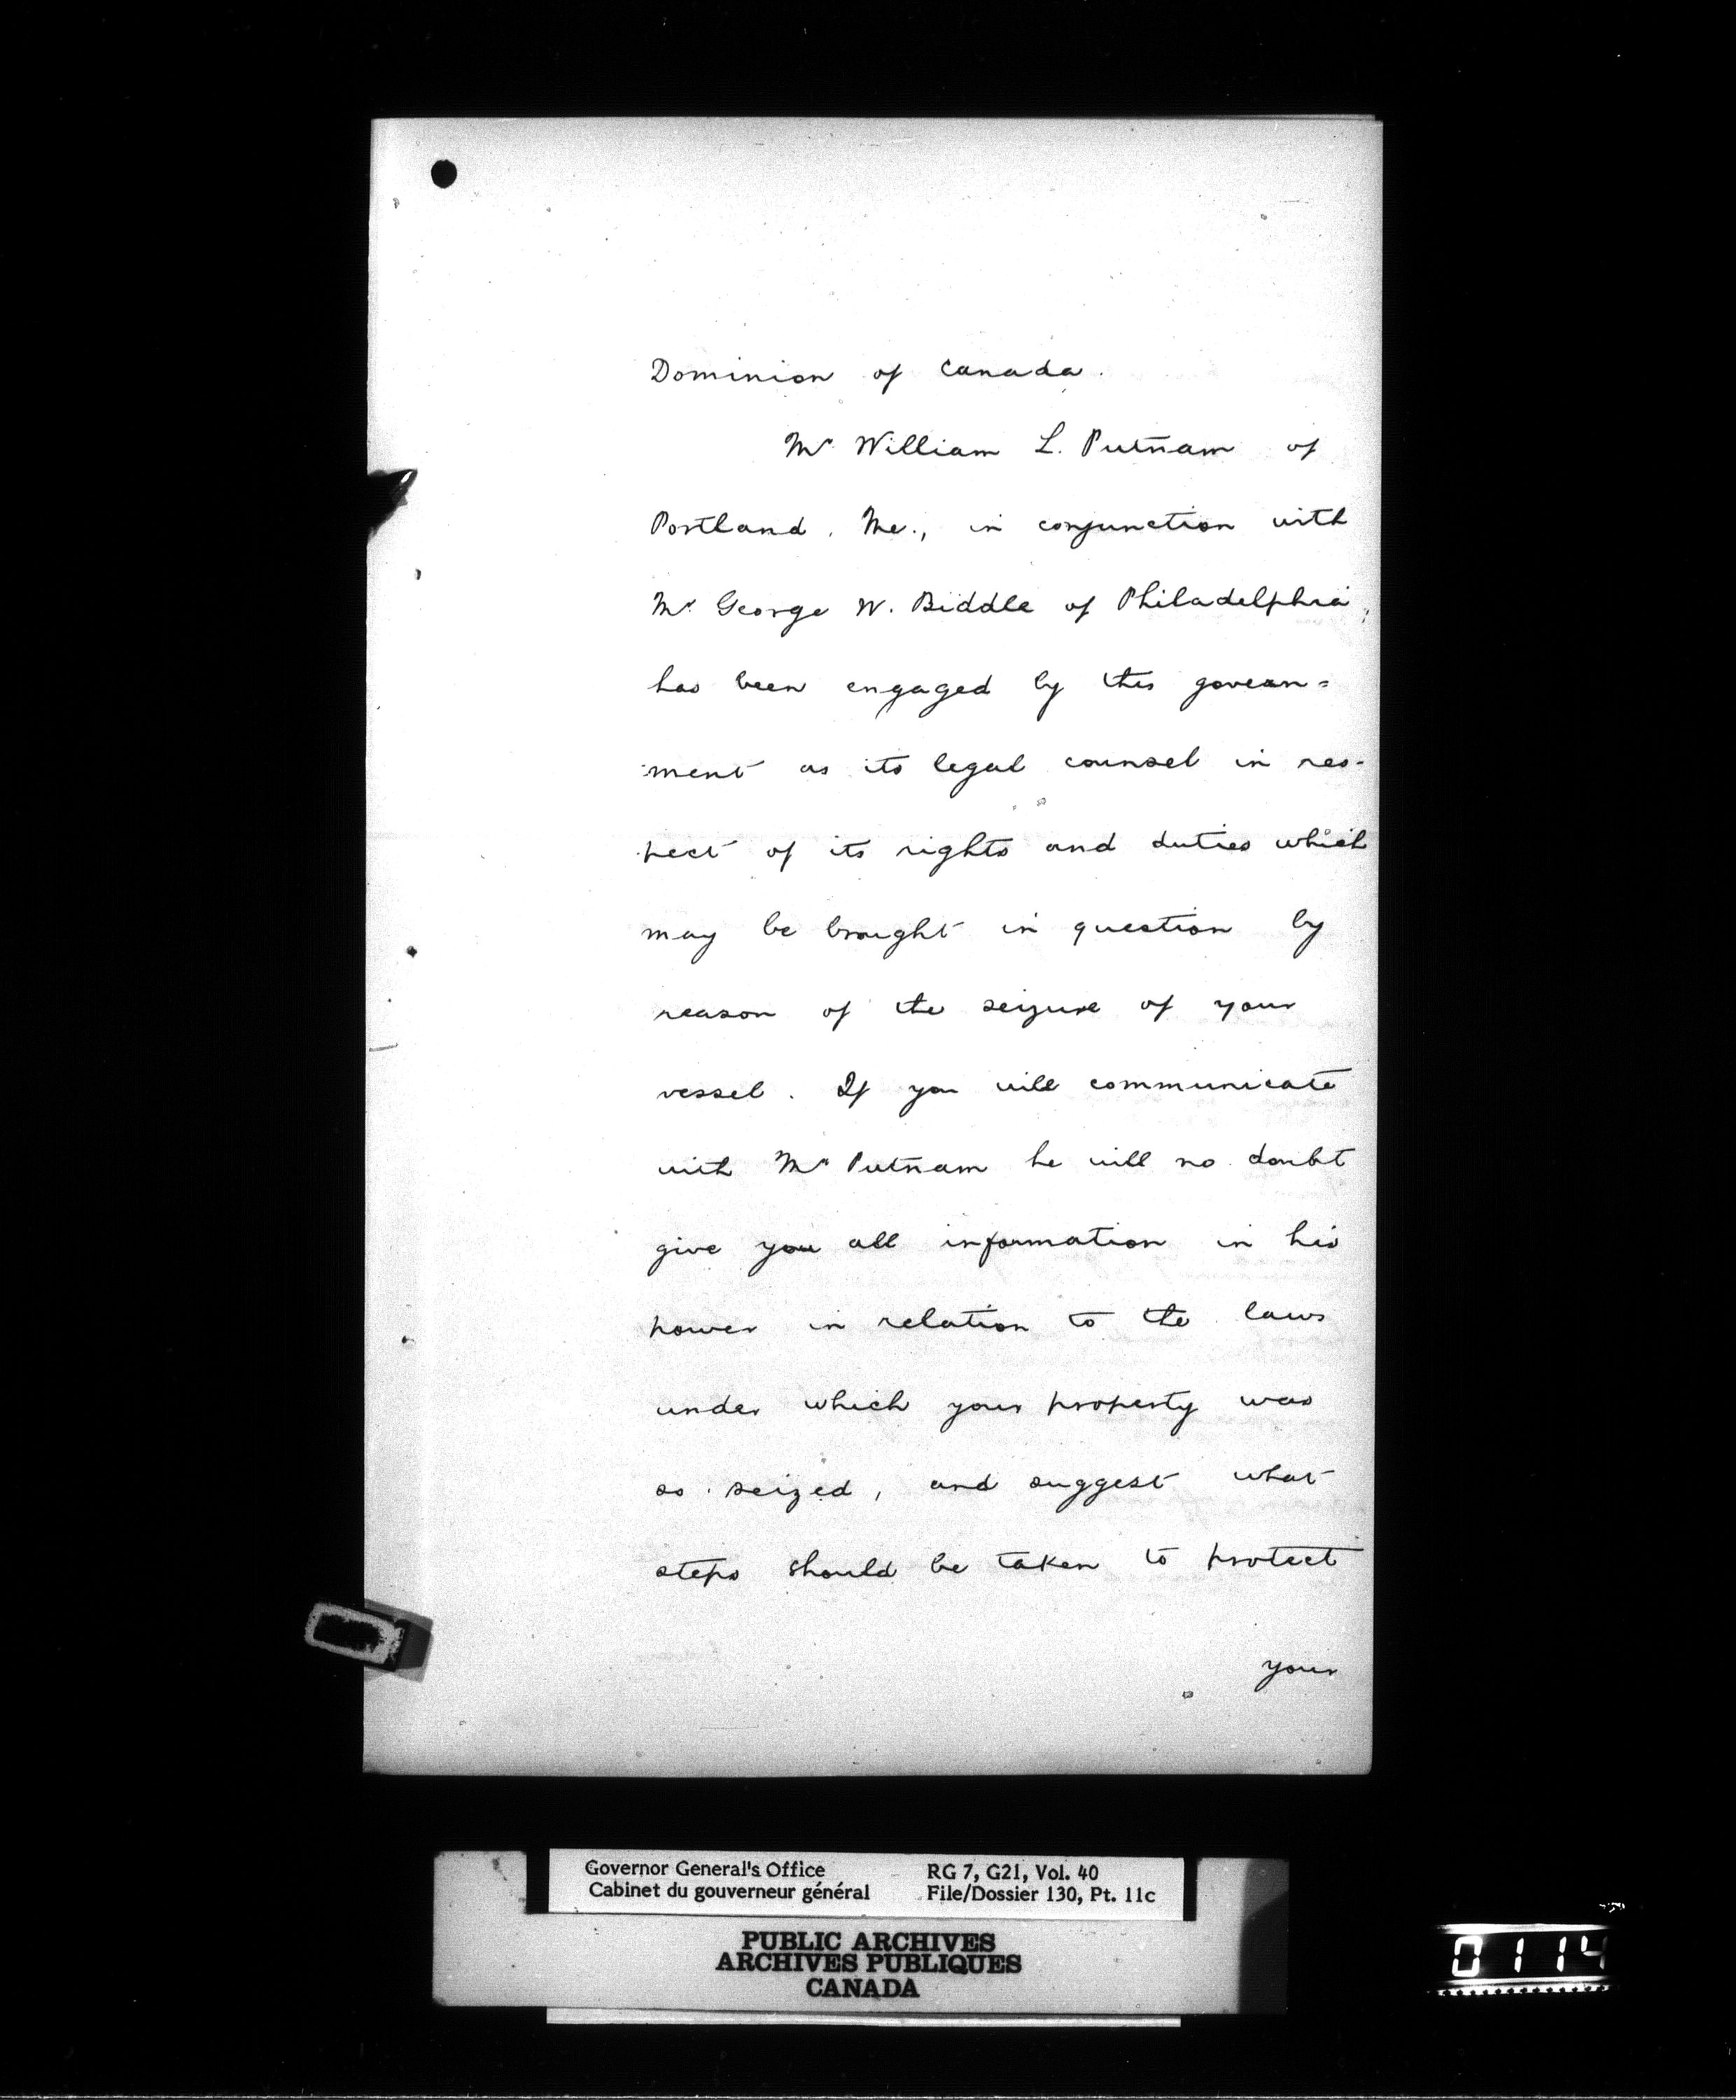 Dominion of Canada.
Mr William L. Putnam of
Portland, Me., in conjunction with
Mr. George W. Biddle of Philadelphia,
has been engaged by this govern=
ment as its legal counsel in res-
pect of its rights and duties which
may be brought in question by
reason of the seizure of your
vessel. If you will communicate
with Mr Putnam he will no doubt
give you all information in his
power in relation to the laws
under which your property was
so seized, and suggest what
steps should be taken to protect
your
Governor General's Office
Cabinet du gouverneur général
RG 7, G21, Vol. 40
File/Dossier 130, Pt. 11c
PUBLIC ARCHIVES
ARCHIVES PUBLIQUES
CANADA
0114